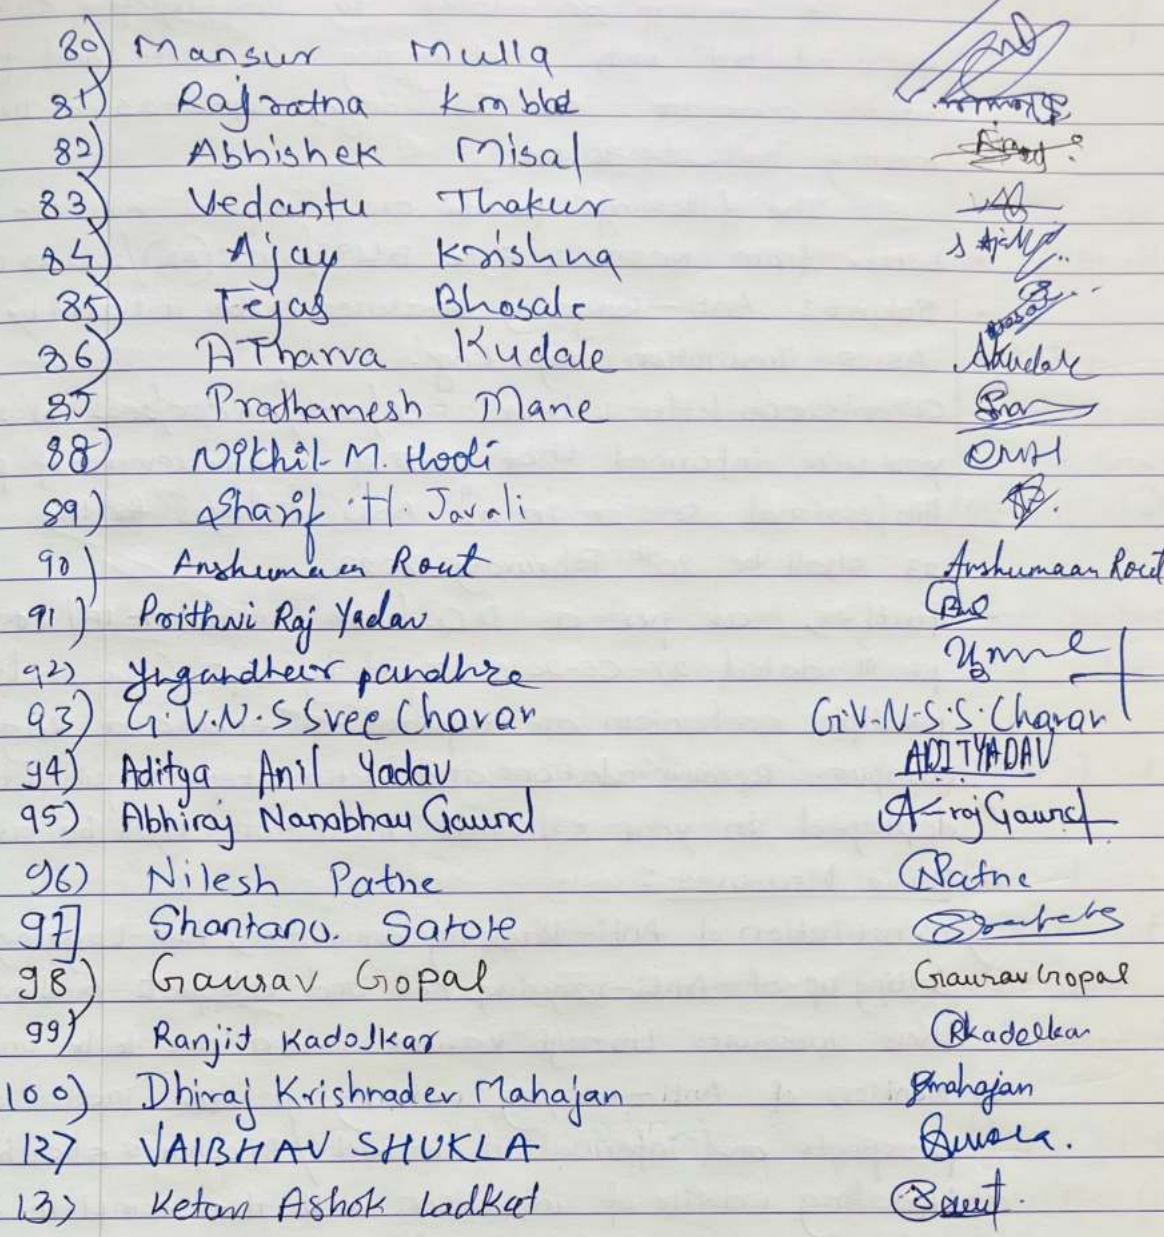 80) Mansur Mulla
81) Rajratna Kmble
82) Abhishek Misal
83) Vedantu Thakur
84) Ajay Krishna
85) Tejas Bhosale
86) ATharva Kudale Akudale
87) Prathamesh Mane
88) Nikhil M. Hooli
89) Sharif H Javali
90) Anshumaan Rout Anshumaan Rout
91) Prithvi Raj Yadav
92) Yugandhar pandhre
93) G.V.N.S Sree Charan G.V.N.S.S. Charan
94) Aditya Anil Yadav ADITYADAV
95) Abhiraj Nanabhau Gaund A-raj Gaund
96) Nilesh Patne NPatne
97] Shantanu. Satote
98) Gaurav Gopal Gaurav Gopal
99) Ranjit Kadolkar RKadolkar
100) Dhiraj Krishnadev Mahajan Dmahajan
12) VAIBHAV SHUKLA
13) Ketan Ashok Ladkat